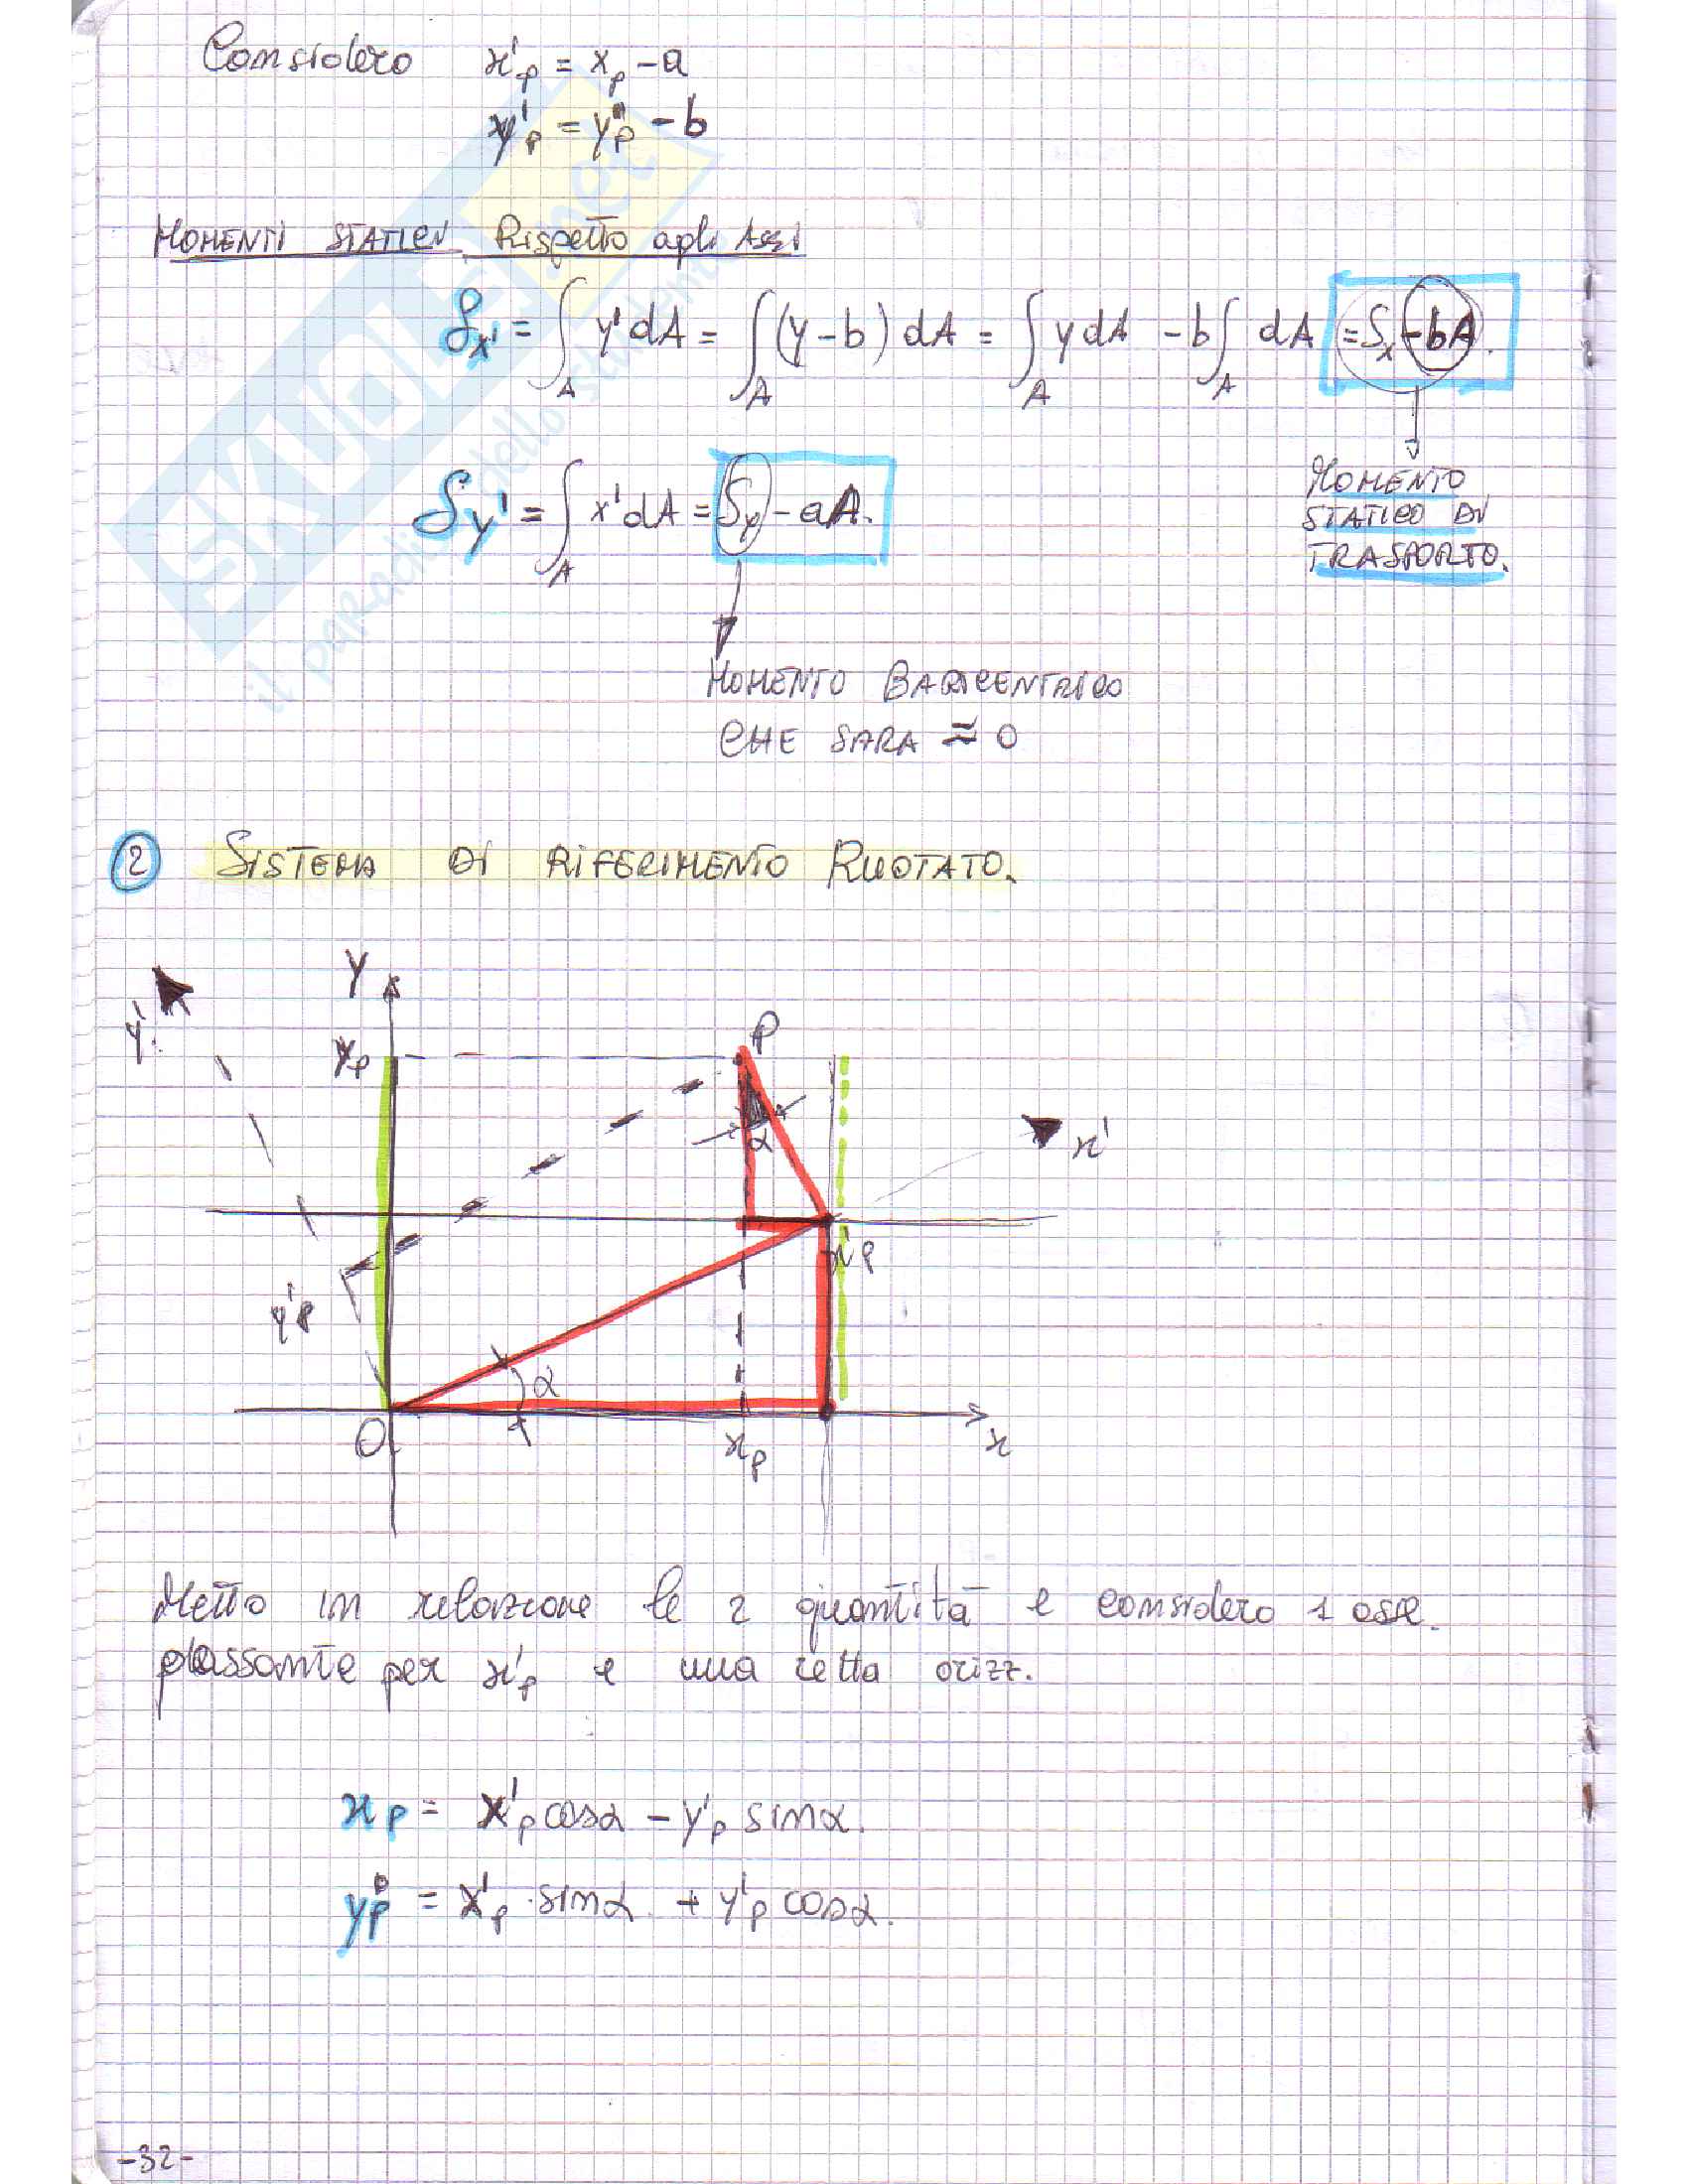 Considero x'p = xp - a
y'p = yp - b
MOMENTI STATICI Rispetto agli Assi
Sx' = ∫A y' dA = ∫A (y - b) dA = ∫A y dA - b ∫A dA = Sx - bA.
MOMENTO
STATICO DI
TRASPORTO.
Sy' = ∫A x' dA = Sy - aA.
MOMENTO BARICENTRICO
CHE SARA ≈ 0
2 SISTEMA DI RIFERIMENTO RUOTATO.
y'
Y
yp
P
α
x'
x'p
y'p
α
O
xp
x
Metto in relazione le 2 quantità e considero 1 asse.
passante per x'p e una retta orizz.
xp = x'p cosα - y'p sinα.
yp = x'p · sinα + y'p cosα.
-32-
SKUOLA.net
il paradiso dello studente